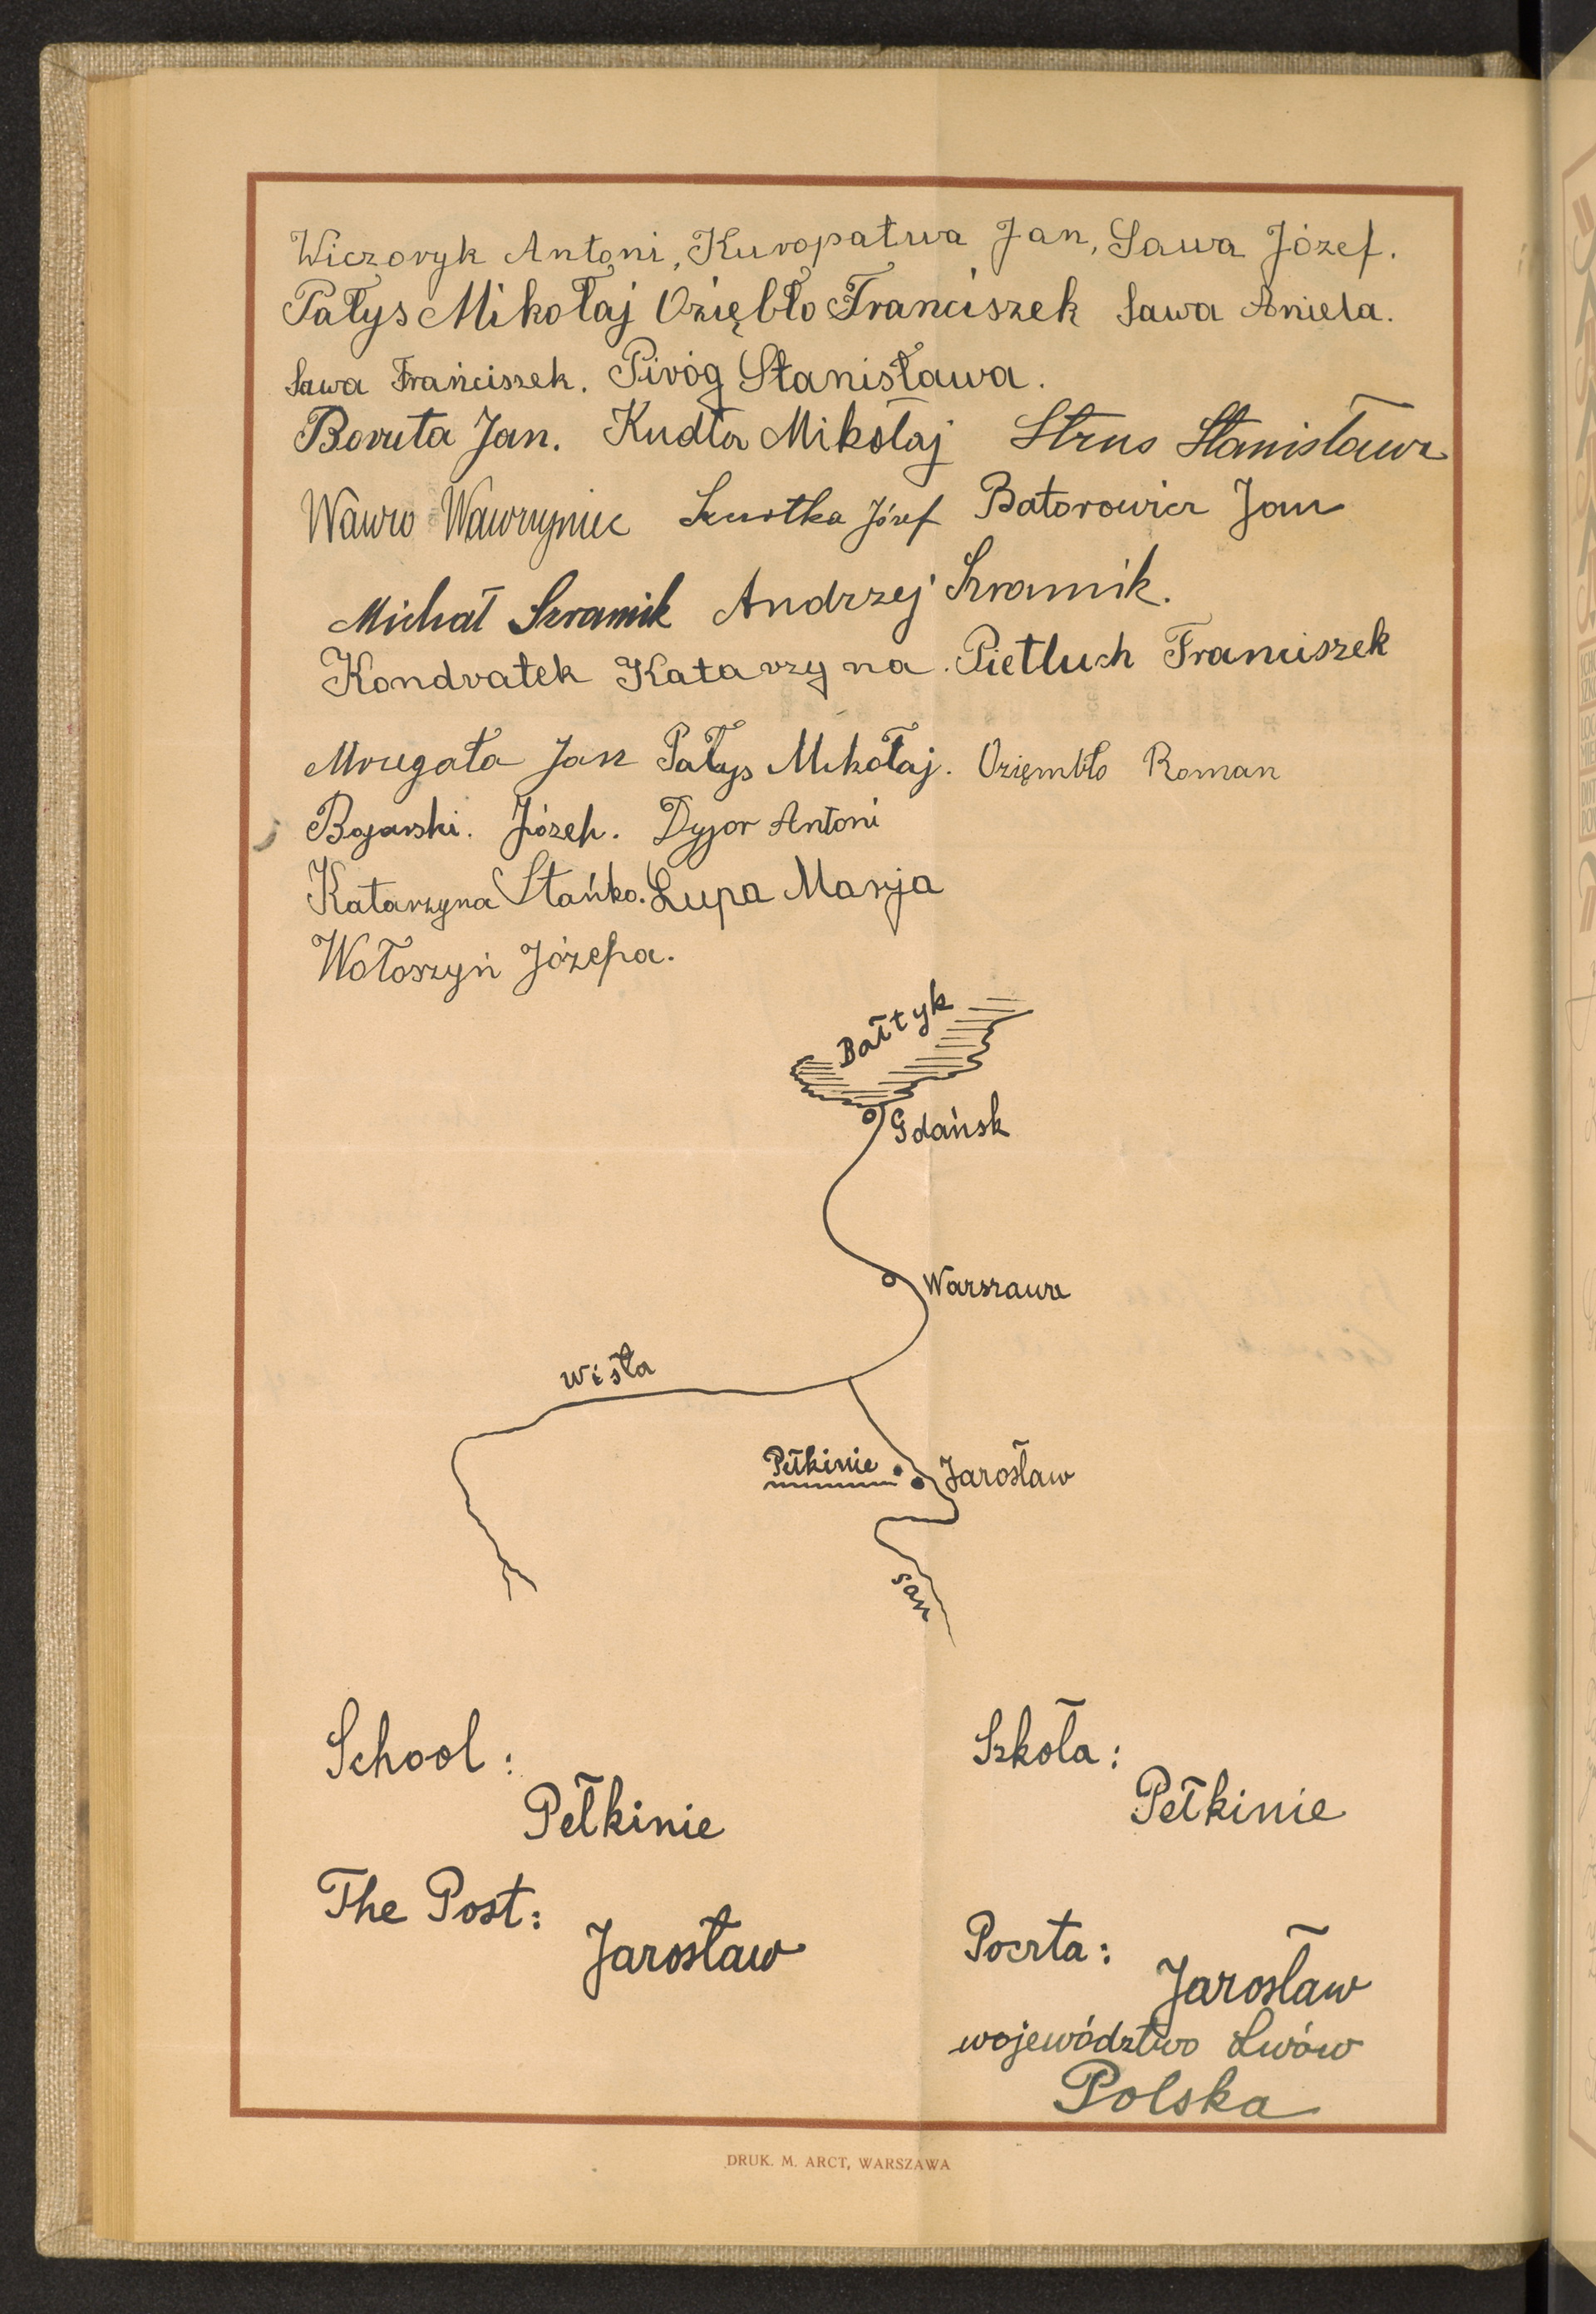 Wiczoryk Antoni, Kuropatwa Jan, Sawa Józef.
Pałys Mikołaj Oziębło Franciszek Sawa Aniela.
Sawa Frańciszek. Piróg Stanisława.
Boruta Jan. Kudła Mikołaj Strus Stanisława
Wawro Wawrzyniec Szustka Józef Batorowicz Jan
Michał Szramik Andrzej Szramik.
Kondratek Katarzyna. Pietluch Franciszek
Mrugała Jan Pałys Mikołaj. Oziembło Roman
Bojarski. Józef. Dyjor Antoni
Katarzyna Stańko. Lupa Marja
Wołoszyń Józefa.
Bałtyk
Gdańsk
Warszawa
Wisła
Pełkinie Jarosław
San
School: Szkoła:
Pełkinie Pełkinie
The Post: Poczta:
Jarosław Jarosław
województwo Lwów
Polska
DRUK. M. ARCT, WARSZAWA